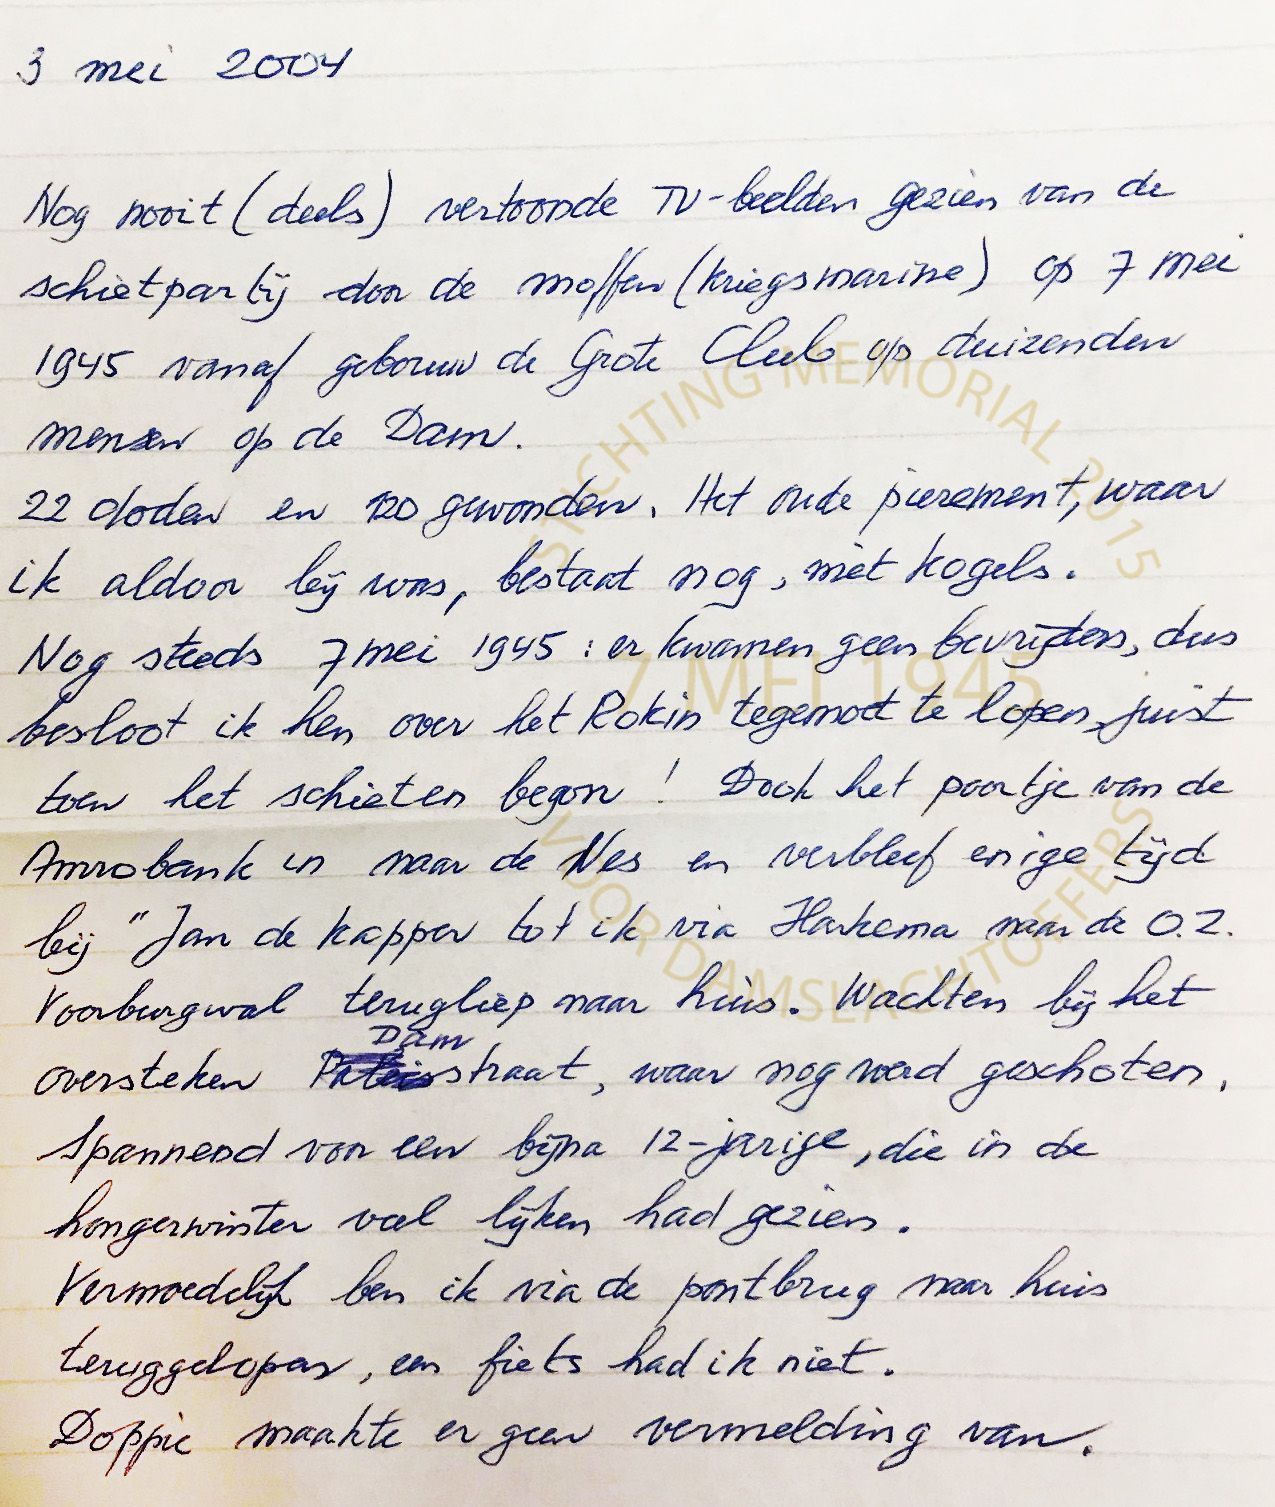 3 mei 2004
Nog nooit (deels) vertoonde TV-beelden gezien van de
schietpartij door de moffen (Kriegsmarine) op 7 mei
1945 vanaf gebouw de Grote Club op duizenden
mensen op de Dam.
22 doden en 120 gewonden. Het oude pierement, waar
ik aldoor bij was, bestaat nog, mét kogels.
Nog steeds 7 mei 1945 : er kwamen geen bevrijders, dus
besloot ik hen over het Rokin tegemoet te lopen, juist
toen het schieten begon ! Dook het poortje van de
Amrobank in naar de Nes en verbleef enige tijd
bij "Jan de kapper tot ik via Harkema naar de O.Z.
Voorburgwal terugliep naar huis. Wachten bij het
Dam
oversteken straat, waar nog werd geschoten.
Spannend voor een bijna 12-jarige, die in de
hongerwinter veel lijken had gezien.
Vermoedelijk ben ik via de pontbrug naar huis
teruggelopen, een fiets had ik niet.
Doppie maakte er geen vermelding van.
STICHTING MEMORIAL 2015
7 MEI 1945
VOOR DAMSLACHTOFFERS